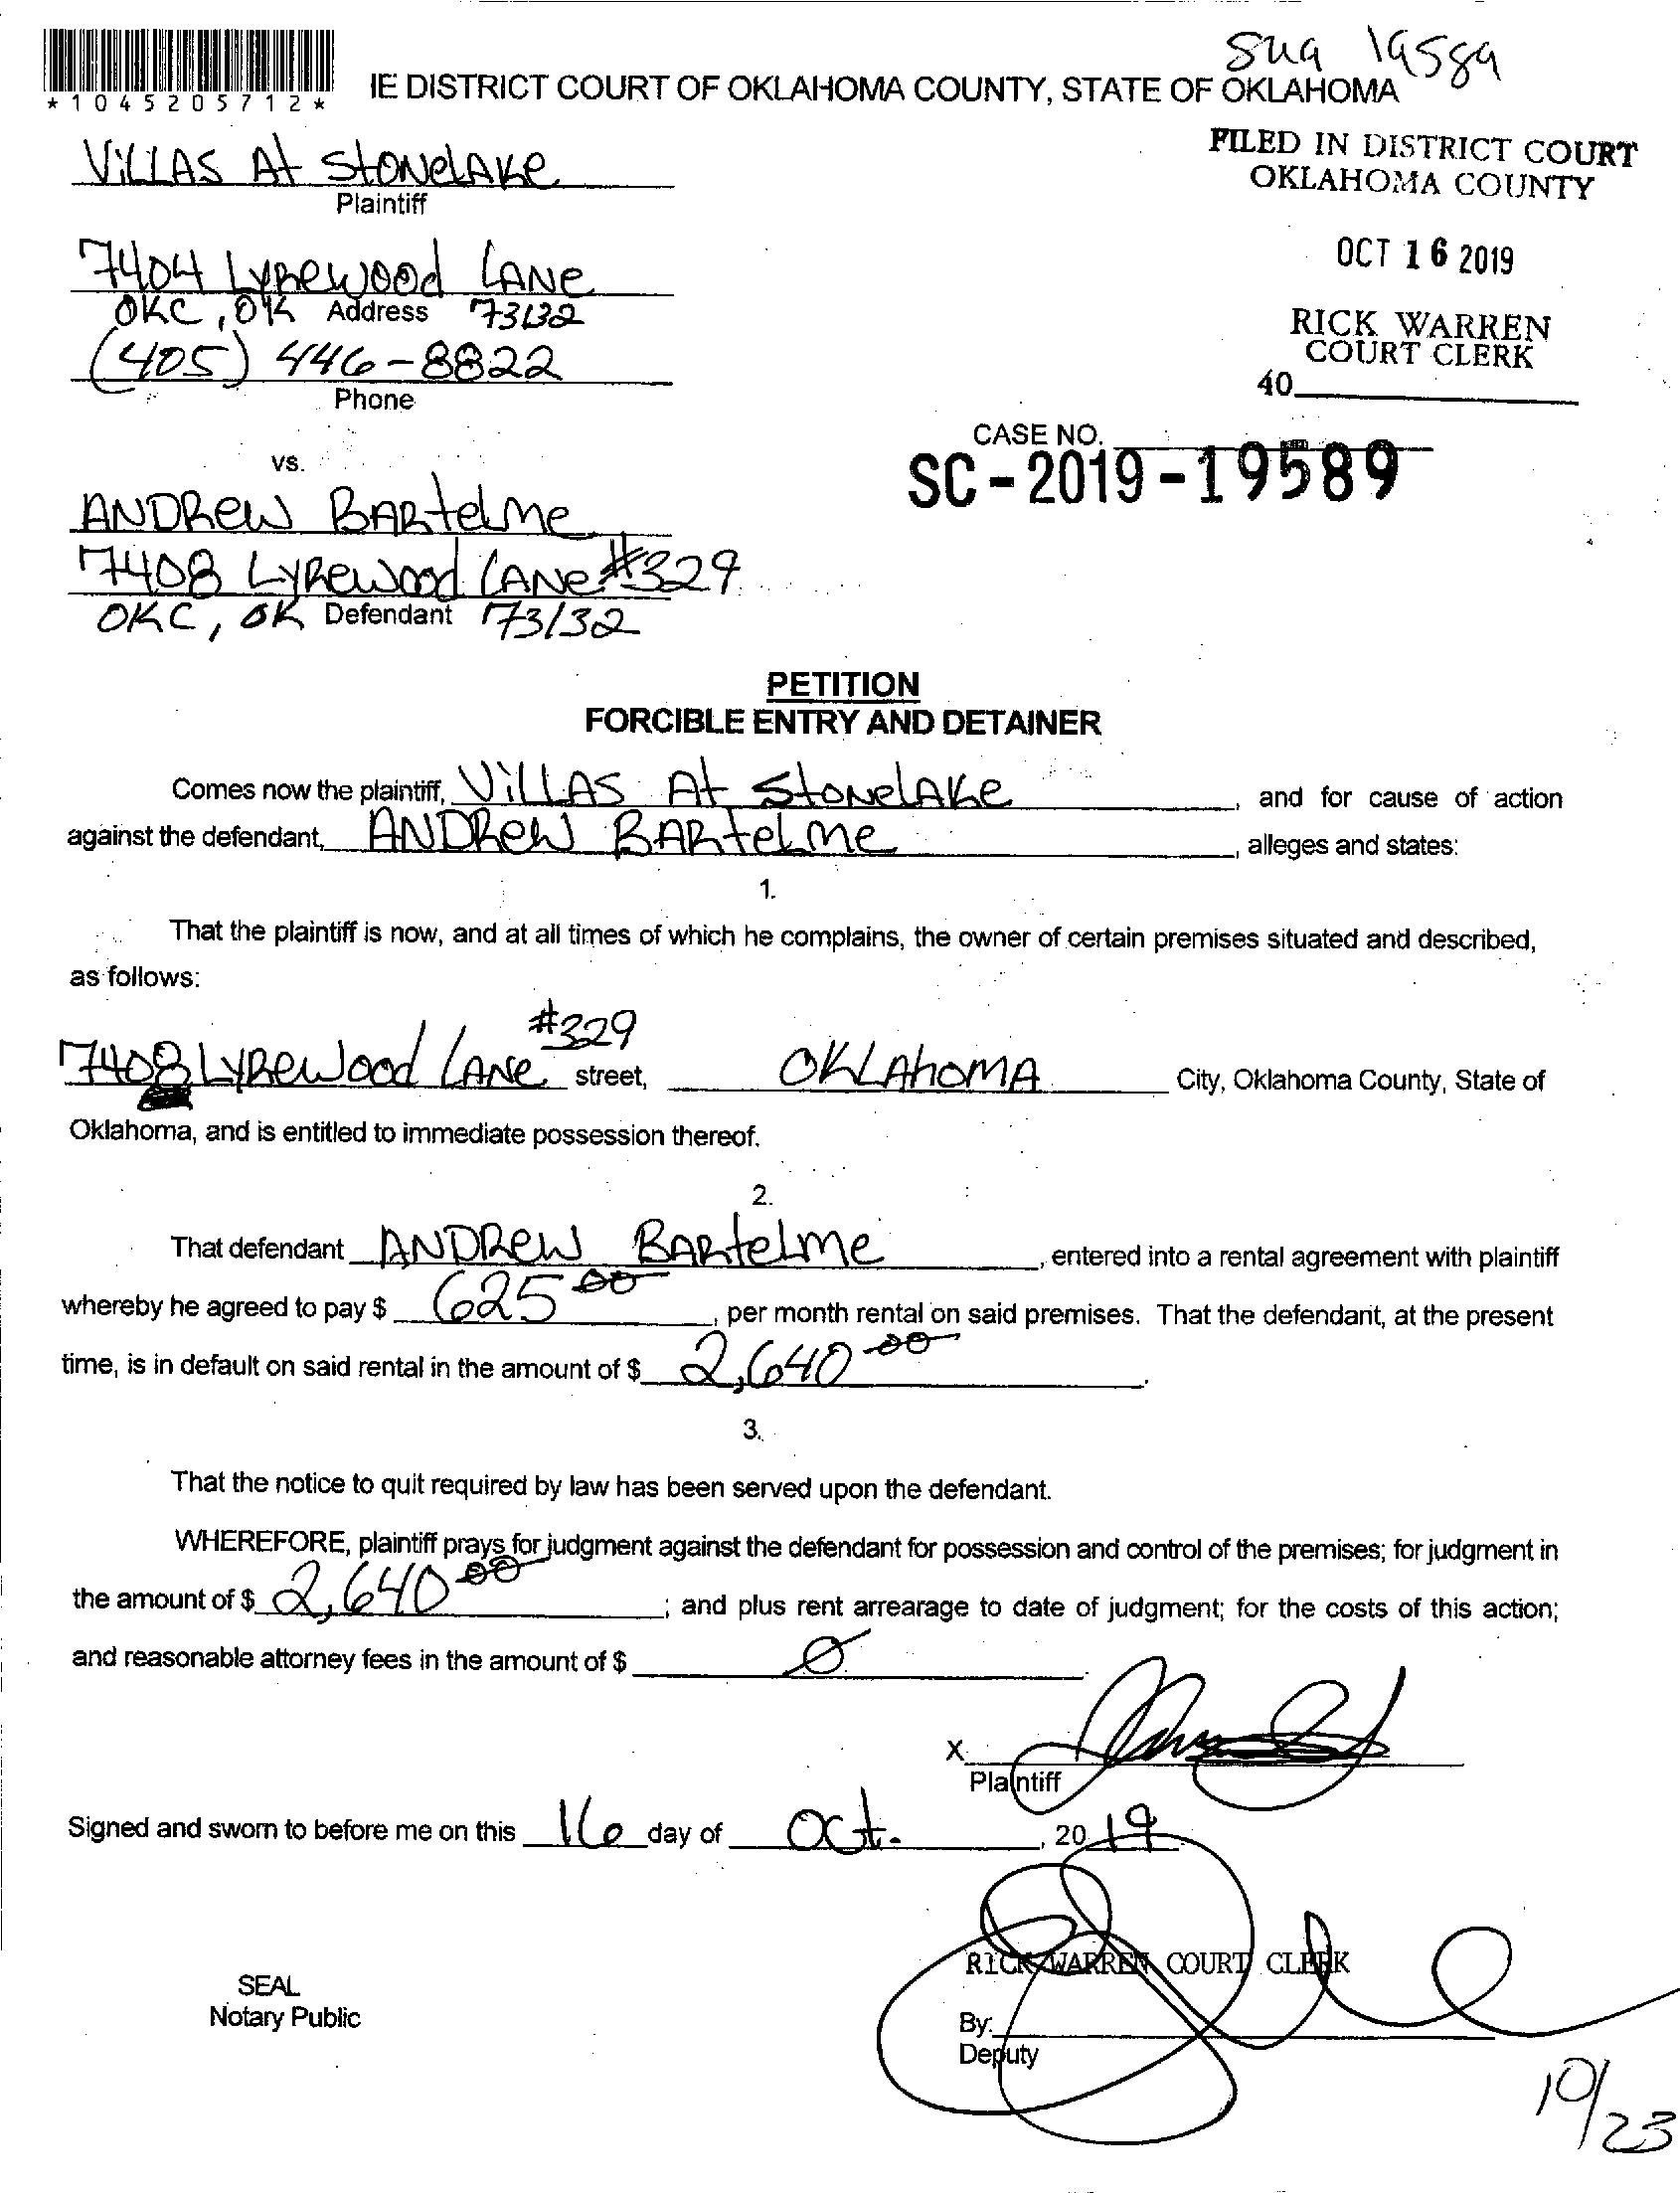 19589
*1045205712*
IE DISTRICT COURT OF OKLAHOMA COUNTY, STATE OF OKLAHOMA
FILED IN DISTRICT COURT
OKLAHOMA COUNTY
OCT 16 2019
RICK WARREN
COURT CLERK
40
VILLAS At StoNelAKe
Plaintiff
7404 LyRewood LANe
OKC, OK Address 73132
(405) 446-8822
Phone
CASE NO.
SC-2019-19589
vs.
ANDRew BARtelMe
7408 LyRewood LANe #329
OKC, OK Defendant 73132
PETITION
FORCIBLE ENTRY AND DETAINER
Comes now the plaintiff, VILLAS At StoNelAKe, and for cause of action
against the defendant, ANDRew BARtelMe, alleges and states:
1.
That the plaintiff is now, and at all times of which he complains, the owner of certain premises situated and described,
as follows:
#329
7408 LyRewood LANe street, OKLAhOMA City, Oklahoma County, State of
Oklahoma, and is entitled to immediate possession thereof.
2.
That defendant ANDRew BARtelMe, entered into a rental agreement with plaintiff
whereby he agreed to pay $ 625 00, per month rental on said premises. That the defendant, at the present
time, is in default on said rental in the amount of $ 2,640 00.
3.
That the notice to quit required by law has been served upon the defendant.
WHEREFORE, plaintiff prays for judgment against the defendant for possession and control of the premises; for judgment in
the amount of $ 2,640 00; and plus rent arrearage to date of judgment; for the costs of this action;
and reasonable attorney fees in the amount of $ Ø
X
Plaintiff
Signed and sworn to before me on this 16 day of Oct., 20 19
RICK WARREN COURT CLERK
SEAL
Notary Public
By:
Deputy
10/23